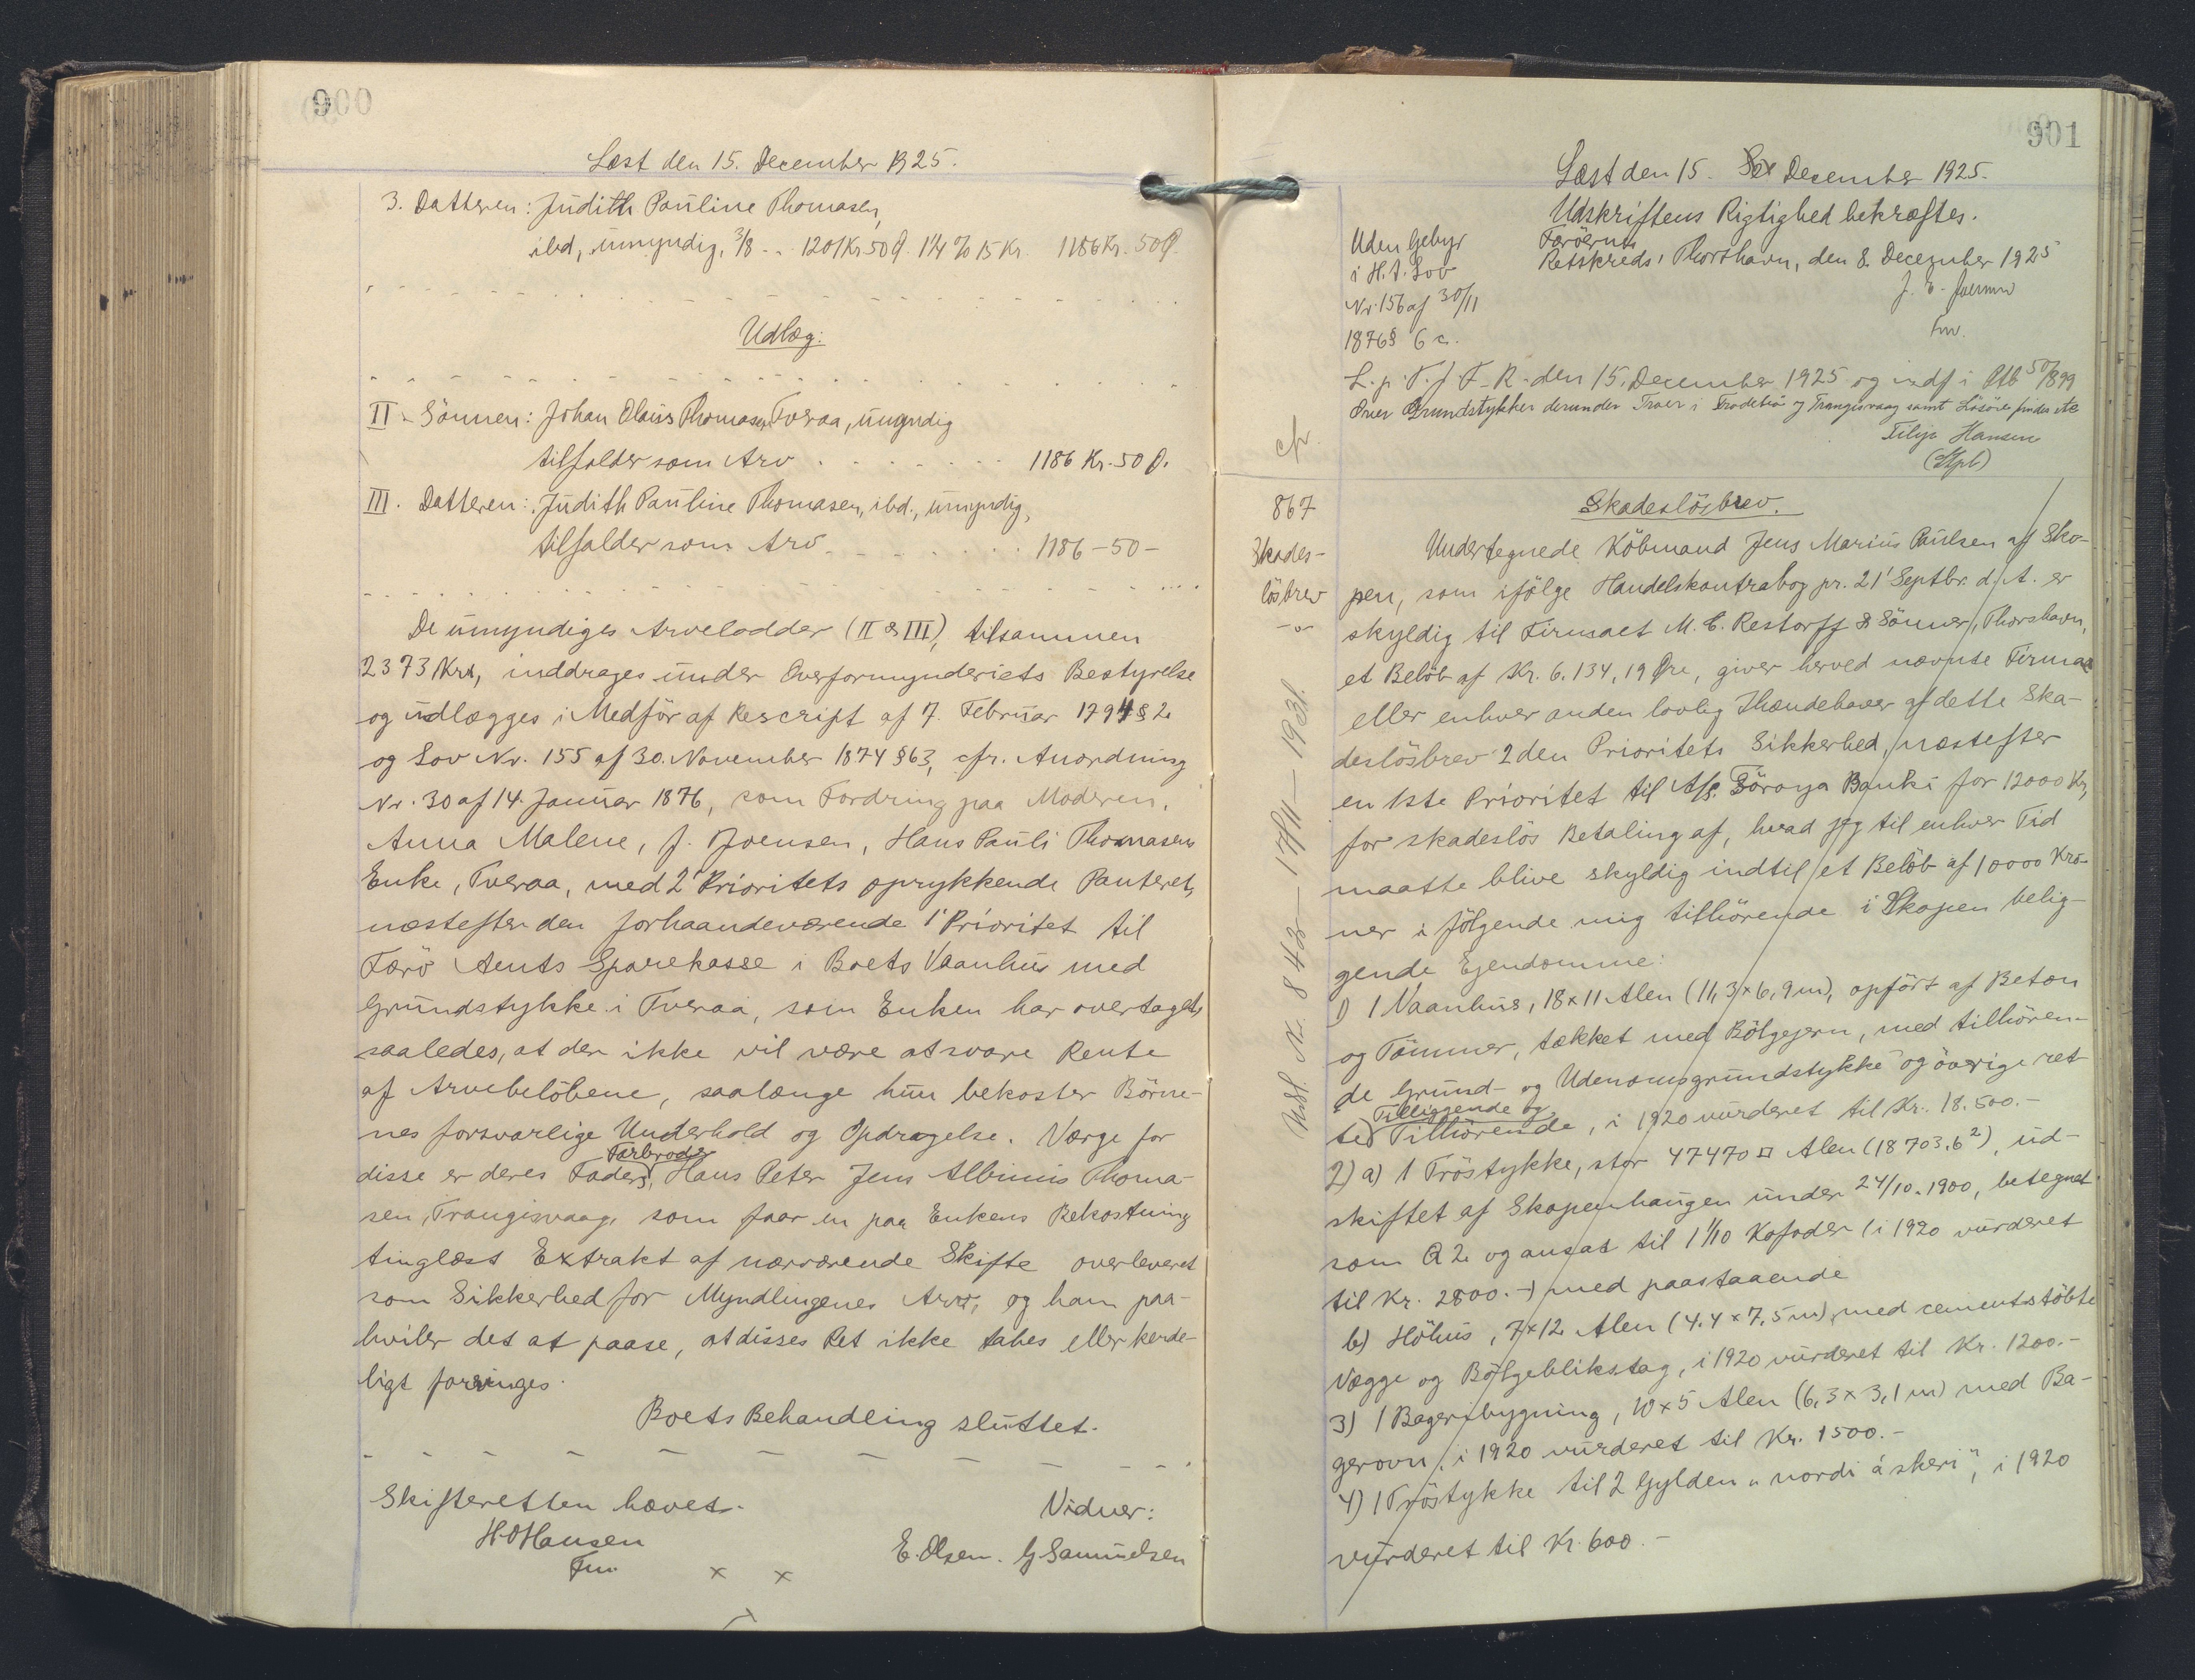 900
Læst den 15. December 1925.
3. Datteren: Judith Pauline Thomasen,
ibd, umyndig, 3/8 - - 1201 Kr. 50 Ø. 1¼ % 15 Kr. 1186 Kr. 50 Ø.
Udlæg:
II - Sönnen: Johan Olaus Thomasen, Tveraa, umyndig
tilfalder som Arv 1186 Kr. 50 Ø.
III. Datteren: Judith Pauline Thomasen, ibd., umyndig,
tilfalder som Arv 1186 - 50 -
De umyndiges Arvelodder (II & III), tilsammen
2373 Kr, inddrages under Overformynderiets Bestyrelse
og udlægges i Medför af Rescript af 7. Februar 1794 § 2
og Lov Nr. 155 af 30. November 1874 § 63, cfr. Anordning
Nr. 30 af 14. Januar 1876, som Fordring paa Moderen,
Anna Malene, f. Joensen, Hans Pauli Thomasens
Enke, Tveraa, med 2' Prioritets oprykkende Panteret,
næstefter den forhaandeværende 1' Prioritet til
Færö Amts Sparekasse i Boets Vaanhus med
Grundstykke i Tveraa, som Enken har overtaget,
saaledes, at der ikke vil være at svare Rente
af Arvebelöbene, saalænge hun bekoster Börne-
nes forsvarlige Underhold og Opdragelse. Værge for
Farbroder
disse er deres Faders, Hans Peter Jens Albinus Thoma-
sen, Trangisvaag, som faar en paa Enkens Bekostning
tinglæst Extrakt af nærværende Skifte overleveret
som Sikkerhed for Myndlingenes Arv, og ham paa-
hviler det at paase, at disses Ret ikke tabes eller kende-
ligt forringes.
Boets Behandling sluttet.
Skifteretten hævet.
Vidner:
H. O. Hansen
E. Olsen. G Samuelsen
Fm. x x
901
Læst den 15. December 1925.
Udskriftens Rigtighed bekræftes.
Færöernes
Retskreds, Thorshavn, den 8. December 1925
Fm.
Uden Gebyr
i H. t. Lov
Nr. 156 af 30/11
1876 § 6 c.
L. p. T. f. F. R. den 15. December 1925 og indf i Ptb 50/899
Over Grundstykker derunder Traer i Frodebö og Trangisvaag samt Lösöre findes etc
Filip Hansen
cfr.
867
Skades-
lösbrev
Skadeslösbrev.
Undertegnede Köbmand Jens Marius Paulsen af Sko-
pen, som ifölge Handelskontrabog pr. 21' Septbr. d. A. er
skyldig til Firmaet M. C. Restorff & Sönner, Thorshavn,
et Belöb af Kr. 6.134,19 Øre, giver herved nævnte Firma
eller enhver anden lovlig Ihændehaver af dette Ska-
deslösbrev 2den Prioritets Sikkerhed, næstefter
en 1ste Prioritet til A/S. Föroya Banki for 12000 Kr,
for skadeslös Betaling af, hvad jeg til enhver Tid
maatte blive skyldig indtil et Belöb af 10000 Kro-
ner i fölgende mig tilhörende i Skopen belig-
gende Ejendomme:
1) 1 Vaanhus, 18 x 11 Alen (11,3 x 6,9 m), opfört af Beton
og Tömmer, tækket med Bölgejern, med tilhören-
de Grund- og Udenomsgrundstykke og övrige ret-
Tilliggende og
te Tilhörende, i 1920 vurderet til Kr. 18.500.-
2) a) 1 Tröstykke, stor 47470 □ Alen (18703,6²), ud-
skiftet af Skopenhaugen under 24/10. 1900, betegnet
som Q 2 og ansat til 1 1/10 Kofoder (i 1920 vurderet
til Kr. 2800.-) med paastaaende
b) Höhus, 7 x 12 Alen (4.4 x 7.5 m), med cementstöbte
Vægge og Bölgeblikstag, i 1920 vurderet til Kr. 1200.-
3) 1 Bageribygning, 10 x 5 Alen (6,3 x 3,1 m) med Ba-
gerovn, i 1920 vurderet til Kr. 1500.-
4) 1 Tröstykke til 2 Gylden „nordi á skeri", i 1920
vurderet til Kr. 600.-
Udsl. Nr. 842 - 17/11 - 1931.